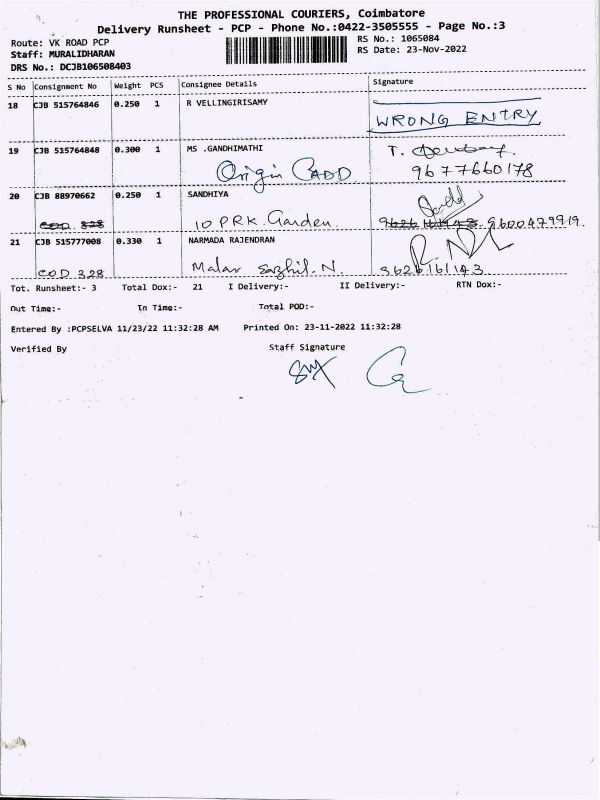 THE PROFESSIONAL COURIERS, Coimbatore
Delivery Runsheet - PCP - Phone No.:0422-3505555 - Page No.:3
Route: VK ROAD PCP
RS No.: 1065084
Staff: MURALIDHARAN
RS Date: 23-Nov-2022
DRS No.: DCJB106508403
S No Consignment No Weight PCS Consignee Details Signature
18 CJB 515764846 0.250 1 R VELLINGIRISAMY
WRONG ENTRY
19 CJB 515764848 0.300 1 MS .GANDHIMATHI T.
Origin CADD 9677660178
20 CJB 88970662 0.250 1 SANDHIYA
COD 328 10 PRK. Garden. 9600479919.
21 CJB 515777008 0.330 1 NARMADA RAJENDRAN
COD 328 Malar N. 9626161143
Tot. Runsheet:- 3 Total Dox:- 21 I Delivery:- II Delivery:- RTN Dox:-
Out Time:- In Time:- Total POD:-
Entered By :PCPSELVA 11/23/22 11:32:28 AM Printed On: 23-11-2022 11:32:28
Verified By Staff Signature